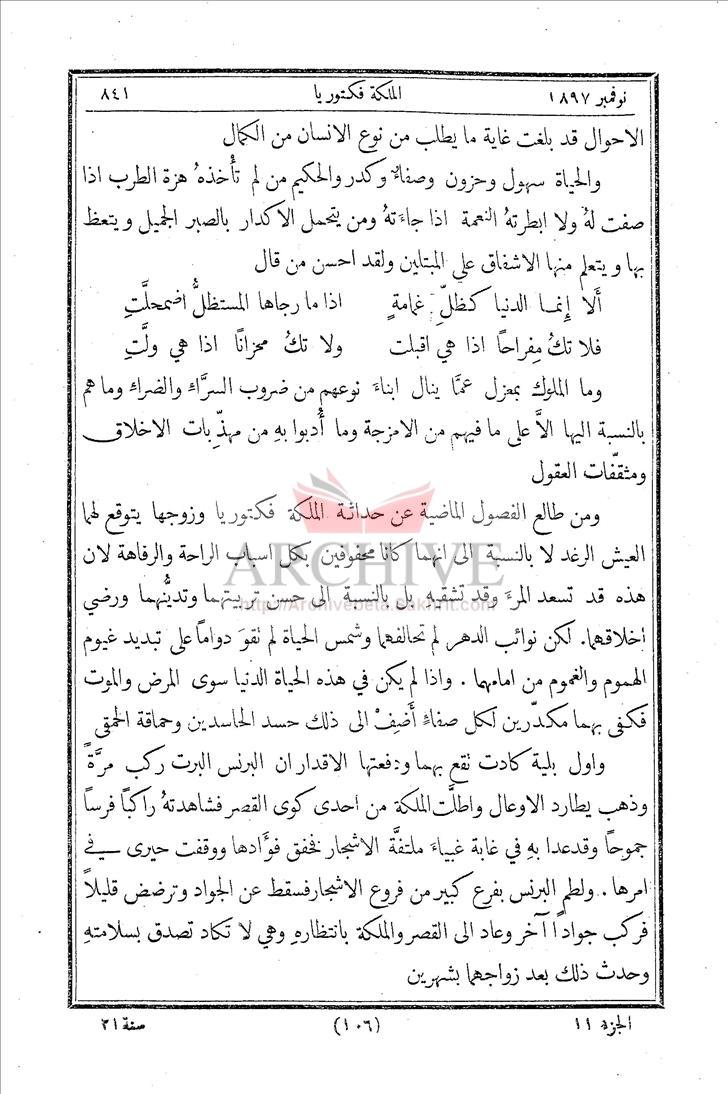 نوفمبر ١٨٩٧ الملكة فكتوريا ٨٤١
الاحوال قد بلغت غاية ما يطلب من نوع الانسان من الكمال
والحياة سهول وحزون وصفاءٌ وكدر والحكيم من لم تأْخذهُ هزة الطرب اذا
صفت لهُ ولا ابطرتهُ النعمة اذا جاءَتهُ ومن يتحمل الاكدار بالصبر الجميل ويتعظ
بها ويتعلم منها الاشفاق على المبتلين ولقد احسن من قال
أَلا إِنمـا الدنيا كظلِّ غمامةٍ اذا ما رجاها المستظلُّ اضمحلَّتِ
فلا تكُ مِفراحًا اذا هي اقبلت ولا تكُ محزانًا اذا هي ولَّتِ
وما الملوك بمعزل عمَّا ينال ابناءَ نوعهم من ضروب السرَّاءِ والضراءِ وما هم
بالنسبة اليها الاَّ على ما فيهم من الامزجة وما أُدبوا بهِ من مهذِّبات الاخلاق
ومثقفات العقول
ومن طالع الفصول الماضية عن حداثة الملكة فكتوريا وزوجها يتوقع لهما
العيش الرغد لا بالنسبة الى انهما كانا محفوفين بكل اسباب الراحة والرفاهة لان
هذه قد تسعد المرءَ وقد تشقيهِ بل بالنسبة الى حسن تربيتهما وتدينُّهما ورضي
اخلاقهما. لكن نوائب الدهر لم تحالفهما وشمس الحياة لم تقوَ دوامًا على تبديد غيوم
الهموم والغموم من امامهما. واذا لم يكن في هذه الحياة الدنيا سوى المرض والموت
فكفى بهما مكدّرين لكل صفاءٍ أَضِفْ الى ذلك حسد الحاسدين وحماقة الحمقى
واول بلية كادت تقع بهما ودفعتها الاقدار ان البرنس البرت ركب مرَّةً
وذهب يطارد الاوعال واطلَّت الملكة من احدى كوى القصر فشاهدتهُ راكبًا فرسًا
جموحًا وقد عدا بهِ في غابة غبياءَ ملتفَّة الاشجار نخفق فؤَادها ووقفت حيرى في
امرها. ولطم البرنس بفرع كبير من فروع الاشجار فسقط عن الجواد وترضض قليلاً
فركب جوادًا آخر وعاد الى القصر والملكة بانتظارهِ وهي لا تكاد تصدق بسلامتهِ
وحدث ذلك بعد زواجهما بشهرين
الجزء ١١ (١٠٦) سنة ٢١
ARCHIVE
http://Archivebeta.Sakhrit.com